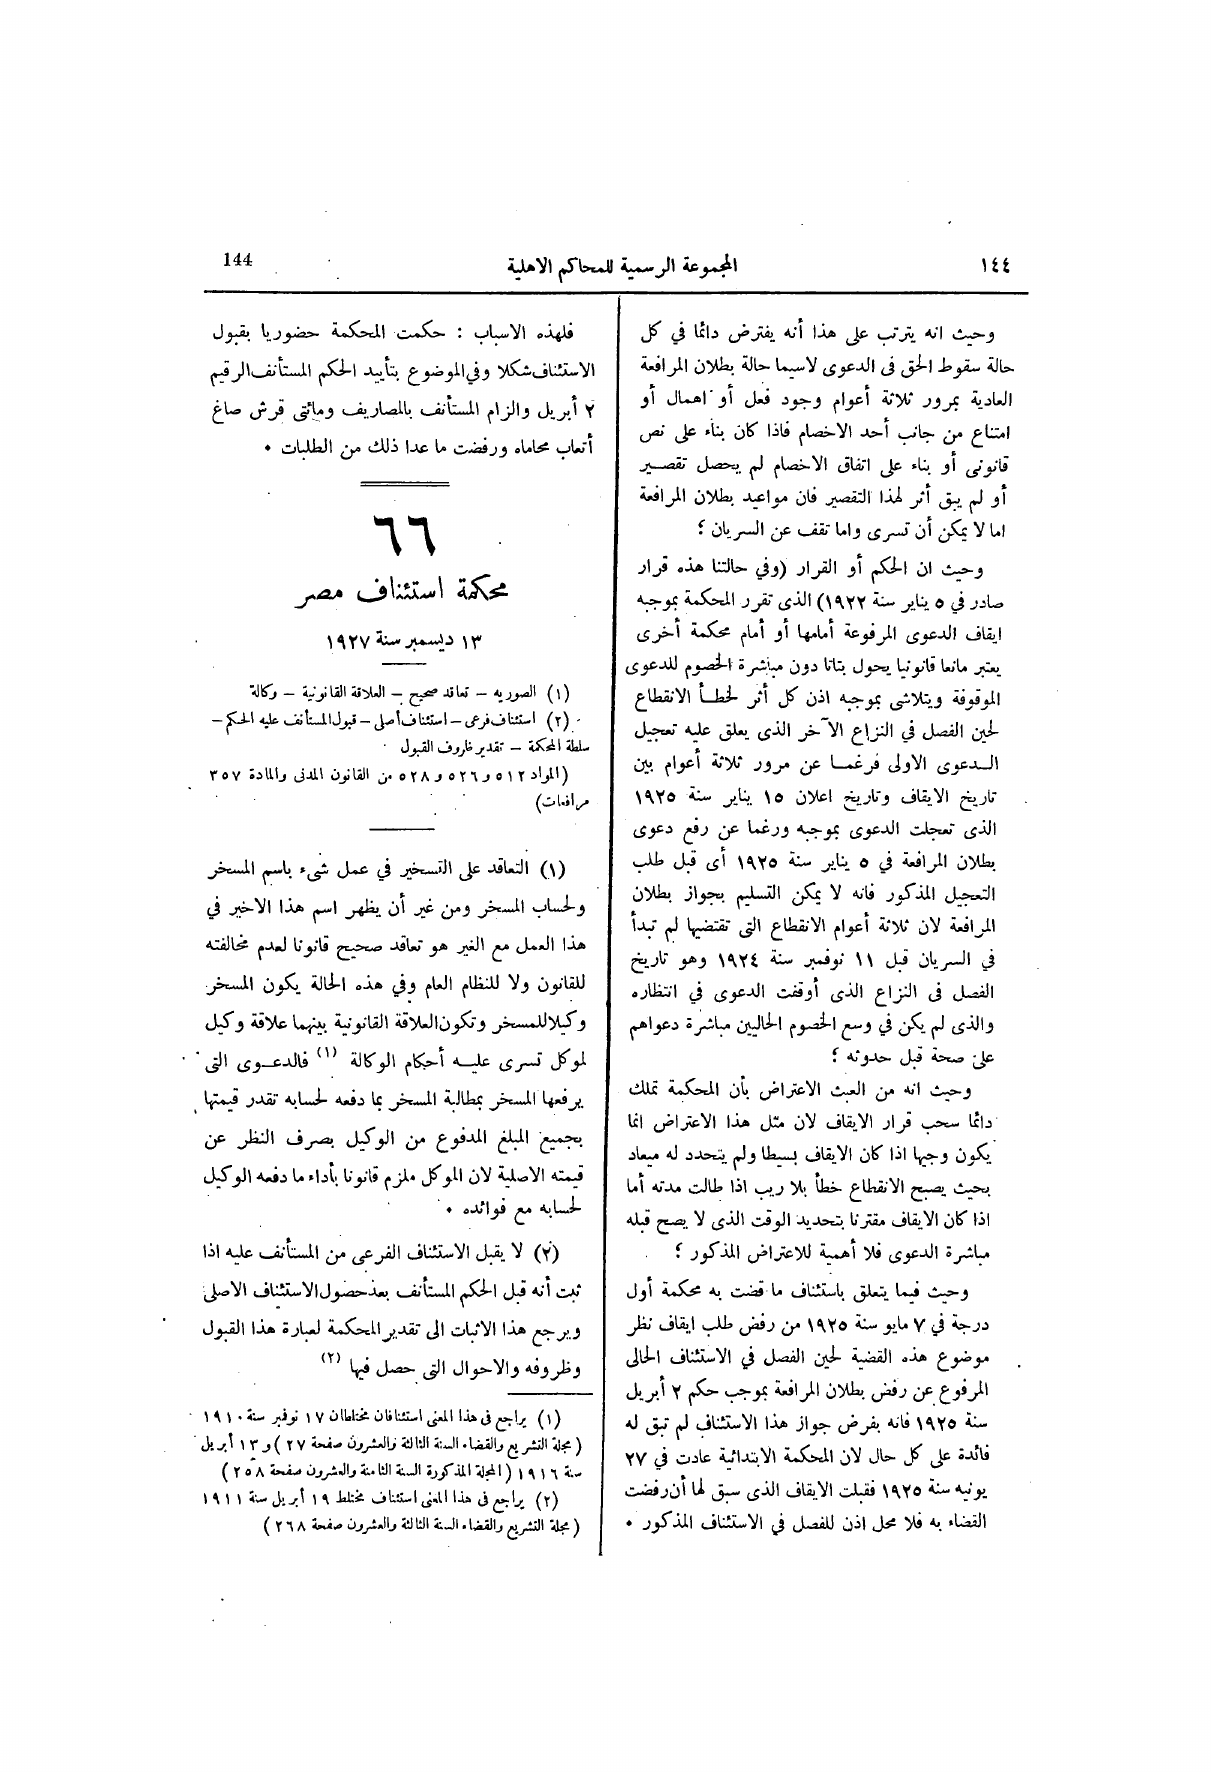 ١٤٤ المجموعة الرسمية للمحاكم الاهلية 144
وحيث انه يترتب على هذا أنه يفترض دائما في كل
حالة سقوط الحق فى الدعوى لاسيما حالة بطلان المرافعة
العادية بمرور ثلاثة أعوام وجود فعل أو اهمال أو
امتناع من جانب أحد الاخصام فاذا كان بناء على نص
قانونى أو بناء على اتفاق الاخصام لم يحصل تقصير
أو لم يبق أثر لهذا التقصير فان مواعيد بطلان المرافعة
اما لا يمكن أن تسرى واما تقف عن السريان ؟
وحيث ان الحكم أو القرار (وفي حالتنا هذه قرار
صادر في ٥ يناير سنة ١٩٢٢) الذى تقرر المحكمة بموجبه
ايقاف الدعوى المرفوعة أمامها أو أمام محكمة أخرى
يعتبر مانعا قانونيا يحول بتاتا دون مباشرة الخصوم للدعوى
الموقوفة ويتلاشى بموجبه اذن كل أثر لخطأ الانقطاع
لحين الفصل في النزاع الآخر الذى يعلق عليه تعجيل
الدعوى الاولى فرغما عن مرور ثلاثة أعوام بين
تاريخ الايقاف وتاريخ اعلان ١٥ يناير سنة ١٩٢٥
الذى تعجلت الدعوى بموجبه ورغما عن رفع دعوى
بطلان المرافعة في ٥ يناير سنة ١٩٢٥ أى قبل طلب
التعجيل المذكور فانه لا يمكن التسليم بجواز بطلان
المرافعة لان ثلاثة أعوام الانقطاع التى تقتضيها لم تبدأ
في السريان قبل ١١ نوفمبر سنة ١٩٢٤ وهو تاريخ
الفصل فى النزاع الذى أوقفت الدعوى في انتظاره
والذى لم يكن في وسع الخصوم الحاليين مباشرة دعواهم
على صحة قبل حدوثه ؟
وحيث انه من العبث الاعتراض بأن المحكمة تملك
دائما سحب قرار الايقاف لان مثل هذا الاعتراض انما
يكون وجيها اذا كان الايقاف بسيطا ولم يتحدد له ميعاد
بحيث يصبح الانقطاع خطأ بلا ريب اذا طالت مدته أما
اذا كان الايقاف مقترنا بتحديد الوقت الذى لا يصح قبله
مباشرة الدعوى فلا أهمية للاعتراض المذكور ؟
وحيث فيما يتعلق باستئناف ما قضت به محكمة أول
درجة في ٧ مايو سنة ١٩٢٥ من رفض طلب ايقاف نظر
موضوع هذه القضية لحين الفصل في الاستئناف الحالى
المرفوع عن رفض بطلان المرافعة بموجب حكم ٢ أبريل
سنة ١٩٢٥ فانه بفرض جواز هذا الاستئناف لم تبق له
فائدة على كل حال لان المحكمة الابتدائية عادت في ٢٧
يونيه سنة ١٩٢٥ فقبلت الايقاف الذى سبق لها أن رفضت
القضاء به فلا محل اذن للفصل في الاستئناف المذكور ٠
فلهذه الاسباب : حكمت المحكمة حضوريا بقبول
الاستئناف شكلا وفي الموضوع بتأييد الحكم المستأنف الرقيم
٢ أبريل والزام المستأنف بالمصاريف ومائتى قرش صاغ
أتعاب محاماه ورفضت ما عدا ذلك من الطلبات ٠
٦٦
محكمة استئناف مصر
١٣ ديسمبر سنة ١٩٢٧
(١) الصوريه – تعاقد صحيح – العلاقة القانونية – وكالة
(٢) استئناف فرعى – استئناف أصلى – قبول المستأنف عليه الحكم –
سلطة المحكمة – تقدير ظروف القبول
(المواد ٥١٢ و ٥٢٦ و ٥٢٨ من القانون المدنى والمادة ٣٥٧
مرافعات)
(١) التعاقد على التسخير في عمل شىء باسم المسخر
ولحساب المسخر ومن غير أن يظهر اسم هذا الاخير في
هذا العمل مع الغير هو تعاقد صحيح قانونا لعدم مخالفته
للقانون ولا للنظام العام وفي هذه الحالة يكون المسخر
وكيلا للمسخر وتكون العلاقة القانونية بينهما علاقة وكيل
لموكل تسرى عليه أحكام الوكالة (١) فالدعوى التى
يرفعها المسخر بمطالبة المسخر بما دفعه لحسابه تقدر قيمتها
بجميع المبلغ المدفوع من الوكيل بصرف النظر عن
قيمته الاصلية لان الموكل ملزم قانونا بأداء ما دفعه الوكيل
لحسابه مع فوائده ٠
(٢) لا يقبل الاستئناف الفرعى من المستأنف عليه اذا
ثبت أنه قبل الحكم المستأنف بعد حصول الاستئناف الاصلى
ويرجع هذا الاثبات الى تقدير المحكمة لعبارة هذا القبول
وظروفه والاحوال التى حصل فيها (٢)
(١) يراجع فى هذا المعنى استئنافان مختلطان ١٧ نوفمبر سنة ١٩١٠
(مجلة التشريع والقضاء السنة الثالثة والعشرون صفحة ٢٧) و ١٣ أبريل
سنة ١٩١٦ (المجلة المذكورة السنة الثامنة والعشرون صفحة ٢٥٨)
(٢) يراجع فى هذا المعنى استئناف مختلط ١٩ أبريل سنة ١٩١١
(مجلة التشريع والقضاء السنة الثالثة والعشرون صفحة ٢٦٨)